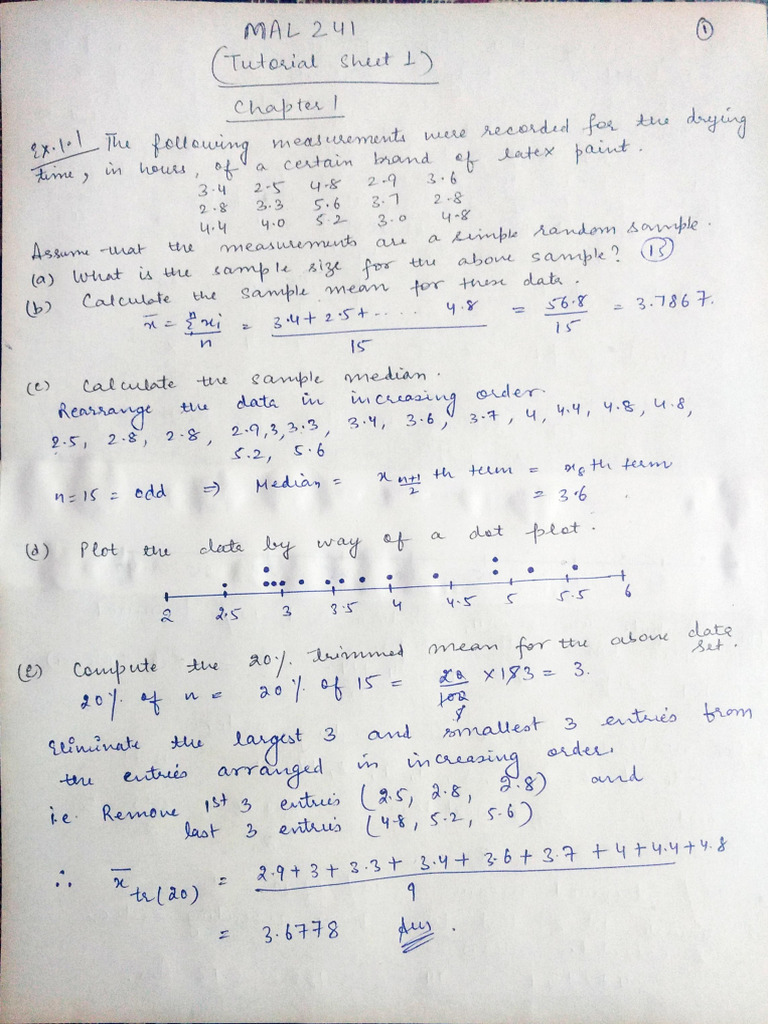 MAL 241
①
(Tutorial Sheet 1)
Chapter 1
Ex.1.1 The following measurements were recorded for the drying
time, in hours, of a certain brand of latex paint.
3.4 2.5 4.8 2.9 3.6
2.8 3.3 5.6 3.7 2.8
4.4 4.0 5.2 3.0 4.8
Assume that the measurements are a simple random sample.
(a) What is the sample size for the above sample? 15
(b) Calculate the sample mean for these data.
x̄ = Σxi/n = 3.4 + 2.5 + .... 4.8 / 15 = 56.8/15 = 3.7867.
(c) Calculate the sample median.
Rearrange the data in increasing order.
2.5, 2.8, 2.8, 2.9, 3, 3.3, 3.4, 3.6, 3.7, 4, 4.4, 4.8, 4.8,
5.2, 5.6
n=15 = odd ⇒ Median = x n+1/2 th term = x8 th term
= 3.6
(d) Plot the data by way of a dot plot.
2 2.5 3 3.5 4 4.5 5 5.5 6
(e) Compute the 20% trimmed mean for the above data set.
20% of n = 20% of 15 = 20/100 × 15 = 3.
Eliminate the largest 3 and smallest 3 entries from
the entries arranged in increasing order.
i.e. Remove 1st 3 entries (2.5, 2.8, 2.8) and
last 3 entries (4.8, 5.2, 5.6)
∴ x̄ tr(20) = 2.9 + 3 + 3.3 + 3.4 + 3.6 + 3.7 + 4 + 4.4 + 4.8 / 9
= 3.6778 Ans.